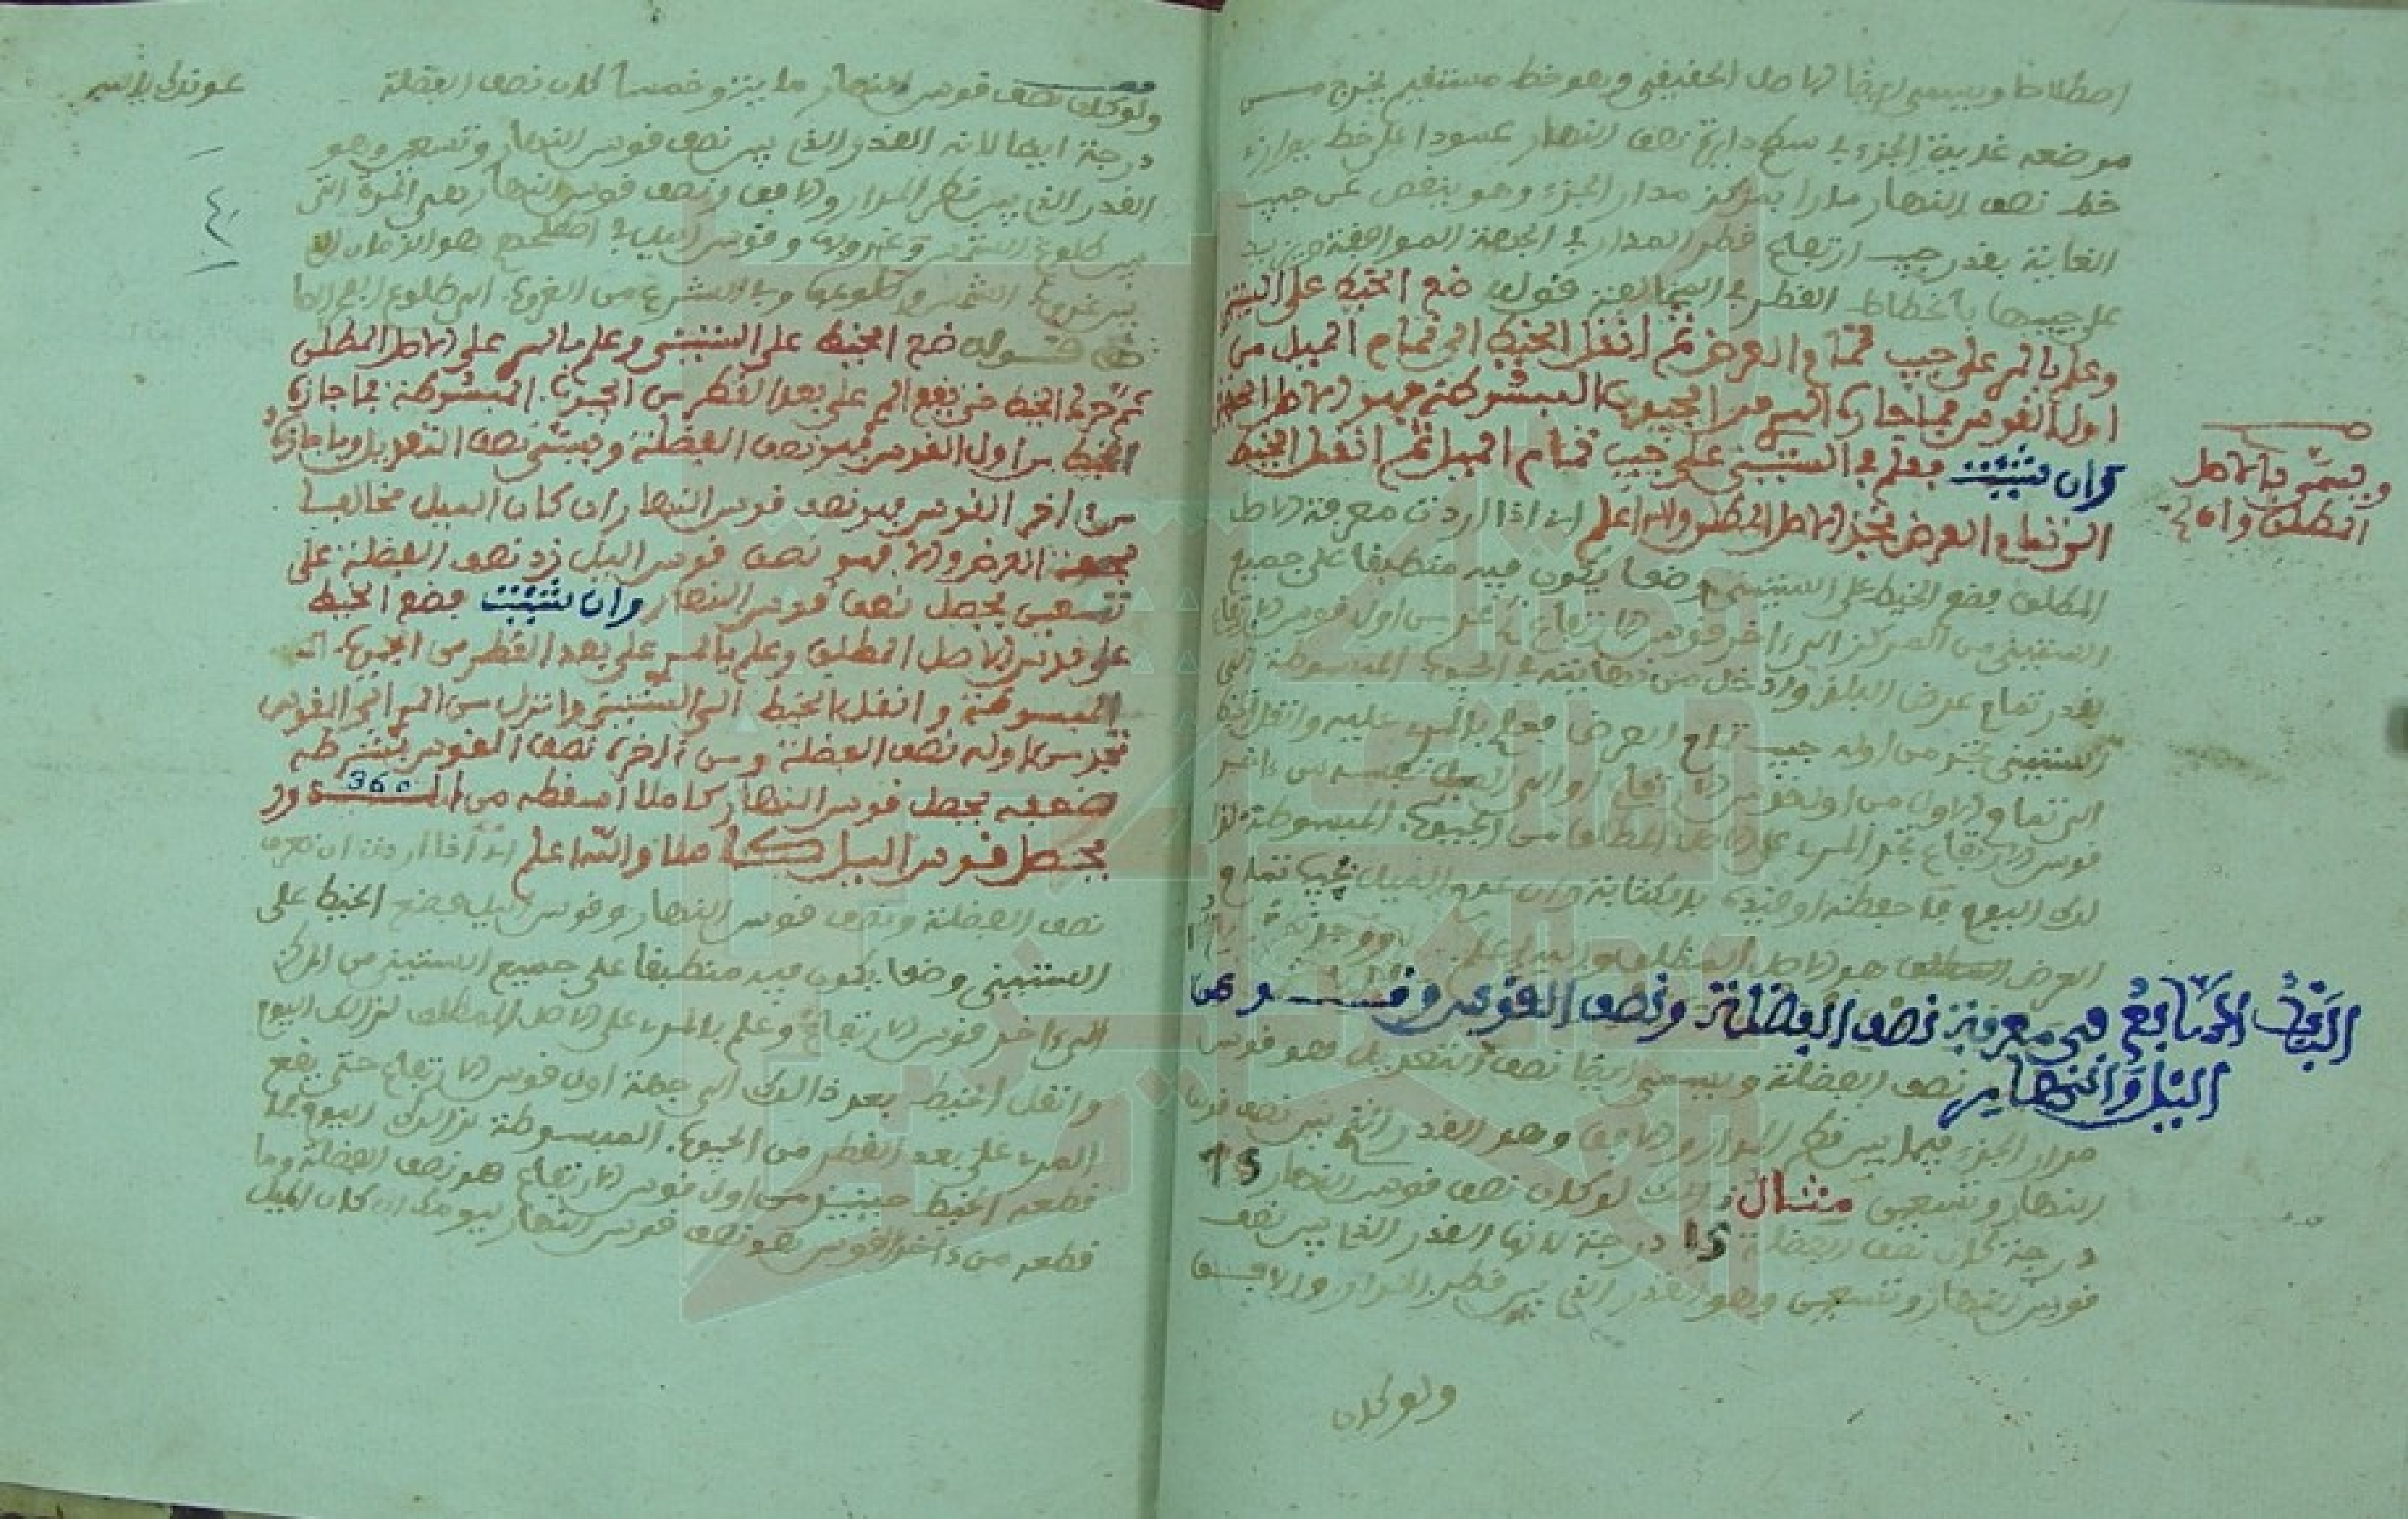 اصطلاحا ويسمى ايضا الاصل الحقيقي وهو خط مستقيم يخرج من
موضعه غاية الجزء في سطح دايرة نصف النهار عمودا على خط يوازي
خط نصف النهار مارا بمركز مدار الجزء وهو ينقص عن جيب
الغاية بقدر جيب ارتفاع قطر المدار في الجهة الموافقة ويزيد
على جيبها بانحطاط القطر في المخالفة قوله ضع الخيط على الستيني
وعلم بالمر على جيب تمام العرض ثم انقل الخيط الى تمام الميل من
اول القوس فما حاذى المر من الجيوب المبسوطة فهو الاصل المطلق
ويسمى بالاصل
المطلق وان
وان شئت فعلم في الستيني على جيب تمام الميل ثم انقل الخيط
الى تمام العرض تجد الاصل المطلق والله اعلم اي اذا اردت معرفة الاصل
المطلق فضع الخيط على الستيني وضعا يكون فيه منطبقا على جميع
الستيني من المركز الى ءاخر قوس الارتفاع ثم عد من اول قوس الارتفاع
بقدر تمام عرض البلد وادخل من نهايته في الجيوب المبسوطة الى
الستيني تجد من اوله جيب تمام العرض فعلم بالمر عليه وانقل الخيط
الى تمام الاول من اول قوس الارتفاع او الى الميل نفسه من ءاخر
قوس الارتفاع تجد المر على الاصل المطلق من الجيوب المبسوطة لذا
لك اليوم فاحفظه او قيده بالكتابة وان
العرض هو الاصل المطلق والله اعلم
الباب السابع في معرفة نصف الفضلة ونصف القوس وقوسي
الليل والنهار نصف الفضلة ويسمى ايضا نصف التعديل هو قوس
مدار الجزء فيما بين قطر المدار والافق وهو القدر الذي بين نصف قوس
النهار وتسعين مثال ذالك لو كان نصف قوس النهار 75
درجة كان نصف الفضلة 15 درجة لانها القدر الذي بين نصف
قوس النهار وتسعين وهو القدر الذي بين قطر المدار والافق
ولو كان
ولو كان نصف قوس النهار ماية وخمسا كان نصف الفضلة
درجة ايضا لانه القدر الذي بين نصف قوس النهار وتسعين وهو
القدر الذي بين قطر المدار والافق ونصف قوس النهار هي المدة التي
بين طلوع الشمس وغروبها وقوس الليل في اصطلاحهم هو الزمان الذي
بين غروب الشمس وطلوعها وفي الشرع من الغروب الى طلوع الفجر
قوله ضع الخيط على الستيني وعلم بالمر على الاصل المطلق
ثم حرك الخيط حتى يقع المر على بعد القطر من الجيوب المبسوطة فما جازه
الخيط من اول القوس فهو نصف الفضلة ويسمى نصف التعديل وما جازه
من ءاخر القوس فهو نصف قوس النهار ان كان الميل مخالفا
لجهة العرض والا فهو نصف قوس الليل زد نصف الفضلة على
تسعين يحصل نصف قوس النهار وان شئت فضع الخيط
على قوس الاصل المطلق وعلم بالمر على بعد القطر من الجيوب
المبسوطة وانقل الخيط الى الستيني وانزل من المر الى القوس
تجد من اوله نصف الفضلة ومن ءاخره نصف القوس بشرطه
ضعفه يحصل قوس النهار كاملا اسقطه من الدور 360
يحصل قوس الليل كاملا والله اعلم اي اذا اردت ان تعرف
نصف الفضلة ونصف قوس النهار وقوس الليل فضع الخيط على
الستيني وضعا يكون فيه منطبقا على جميع الستيني من المركز
الى ءاخر قوس الارتفاع وعلم بالمر على الاصل المطلق لذالك اليوم
وانقل الخيط بعد ذالك الى جهة اول قوس الارتفاع حتى يقع
المر على بعد القطر من الجيوب المبسوطة لذالك اليوم فما
قطعه الخيط حينئذ من اول قوس الارتفاع هو نصف الفضلة وما
قطعه من ءاخر القوس هو نصف قوس النهار ليومك ان كان الميل